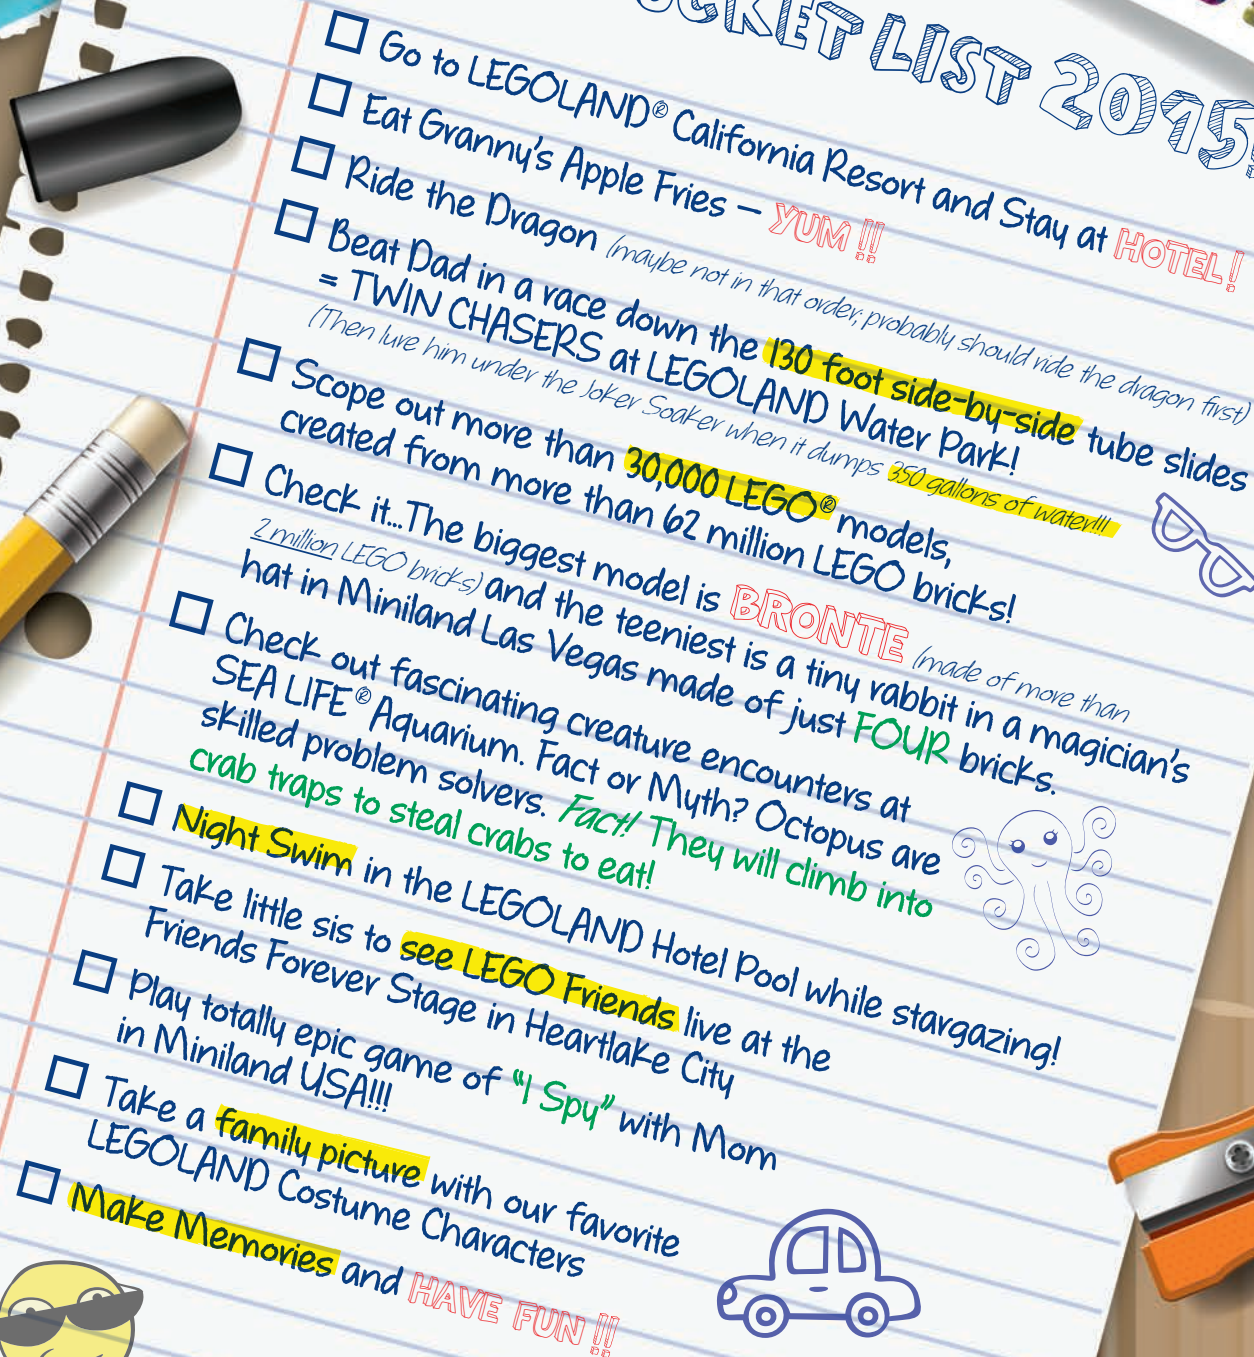 LIST 2015!
Go to LEGOLAND® California Resort and Stay at HOTEL!
Eat Granny's Apple Fries – YUM!!
Ride the Dragon (maybe not in that order; probably should ride the dragon first)
Beat Dad in a race down the 130 foot side-by-side tube slides
= TWIN CHASERS at LEGOLAND Water Park!
(Then lure him under the Joker Soaker when it dumps 350 gallons of water!!!
Scope out more than 30,000 LEGO® models,
created from more than 62 million LEGO bricks!
Check it...The biggest model is BRONTE (made of more than
2 million LEGO bricks) and the teeniest is a tiny rabbit in a magician's
hat in Miniland Las Vegas made of just FOUR bricks.
Check out fascinating creature encounters at
SEA LIFE® Aquarium. Fact or Myth? Octopus are
skilled problem solvers. Fact! They will climb into
crab traps to steal crabs to eat!
Night Swim in the LEGOLAND Hotel Pool while stargazing!
Take little sis to see LEGO Friends live at the
Friends Forever Stage in Heartlake City
Play totally epic game of "I Spy" with Mom
in Miniland USA!!!
Take a family picture with our favorite
LEGOLAND Costume Characters
Make Memories and HAVE FUN!!